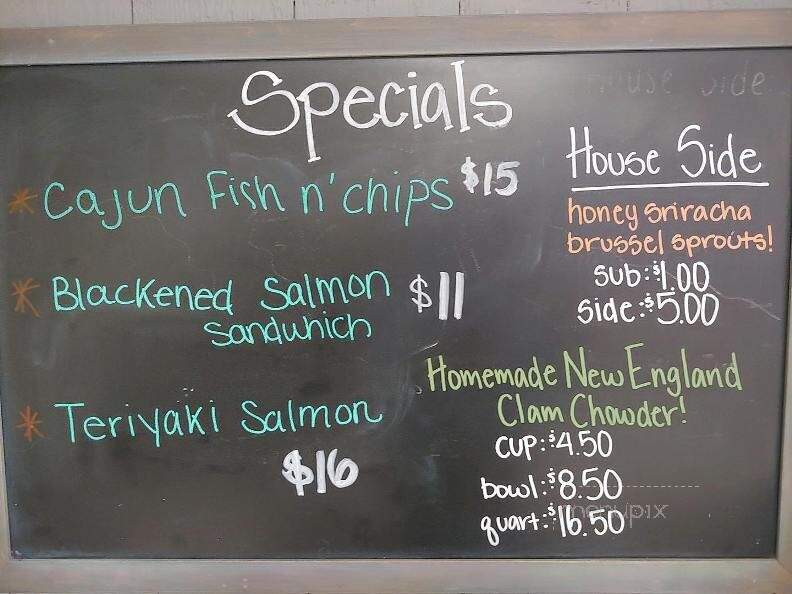 Specials
* Cajun Fish n' chips $15
* Blackened Salmon $11
Sandwhich
* Teriyaki Salmon
$16
House Side
House Side
honey sriracha
brussel sprouts!
sub: $1.00
side: $5.00
Homemade New England
Clam Chowder!
cup: $4.50
bowl: $8.50
quart: $16.50
menupix